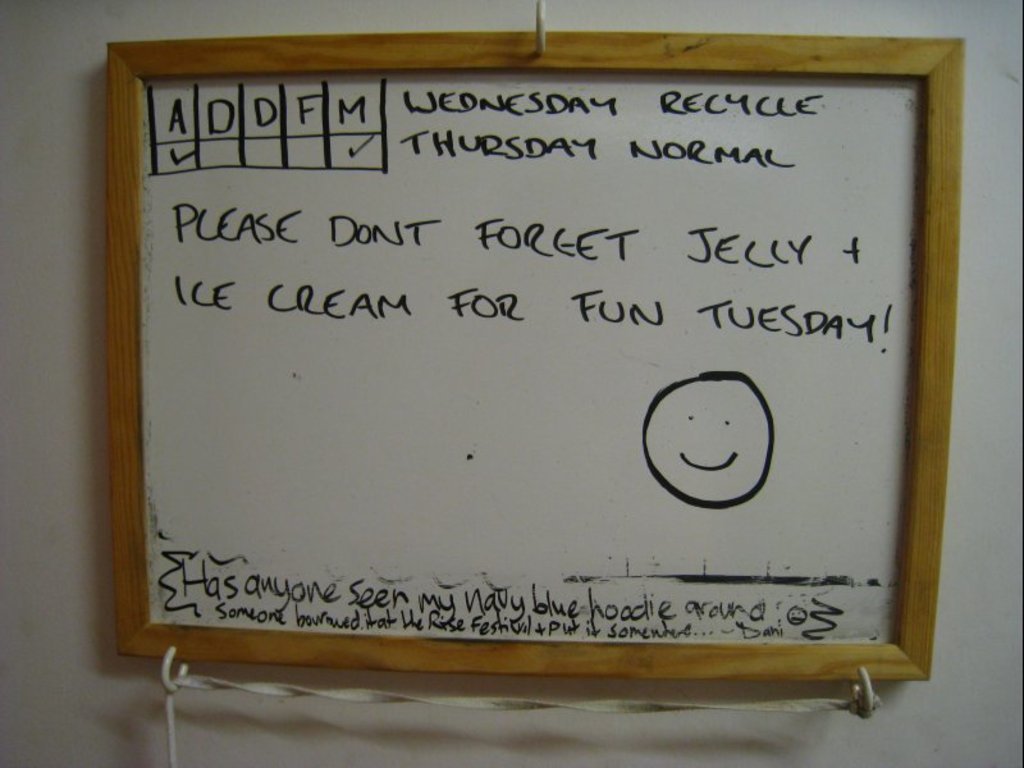 A D D F M
WEDNESDAY RECYCLE
THURSDAY NORMAL
PLEASE DONT FORGET JELLY +
ICE CREAM FOR FUN TUESDAY!
Has anyone seen my navy blue hoodie around
Someone bourrowed it at the Rose Festival + put it somewhere... - Dani